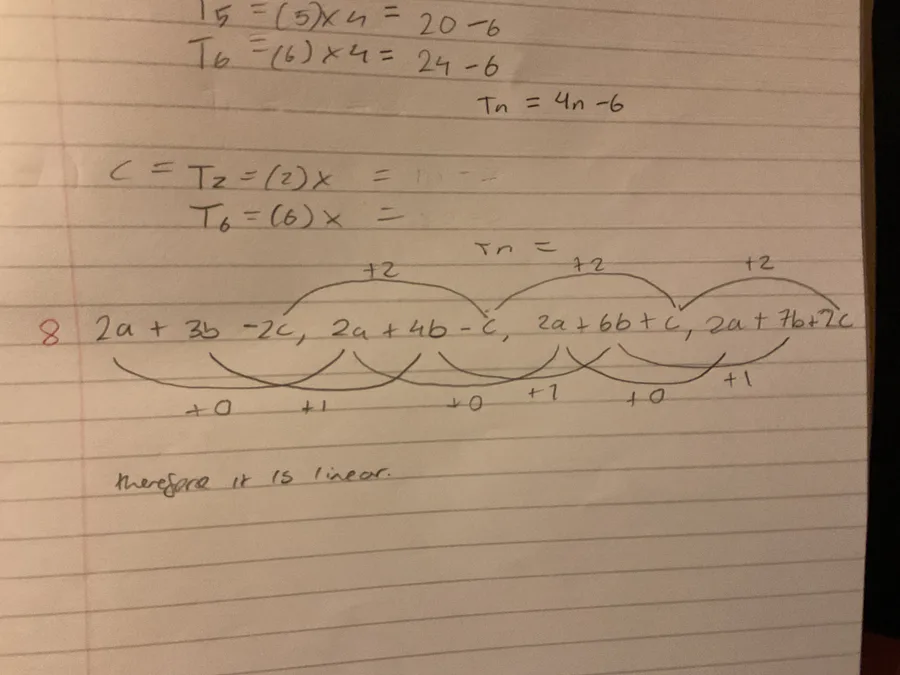 T5 = (5) x 4 = 20 - 6
T6 = (6) x 4 = 24 - 6
Tn = 4n - 6
C = T2 = (2) x =
T6 = (6) x =
Tn =
+2 +2 +2
8 2a + 3b - 2c, 2a + 4b - c, 2a + 6b + c, 2a + 7b + 2c
+0 +1 +0 +1 +0 +1
therefore it is linear.